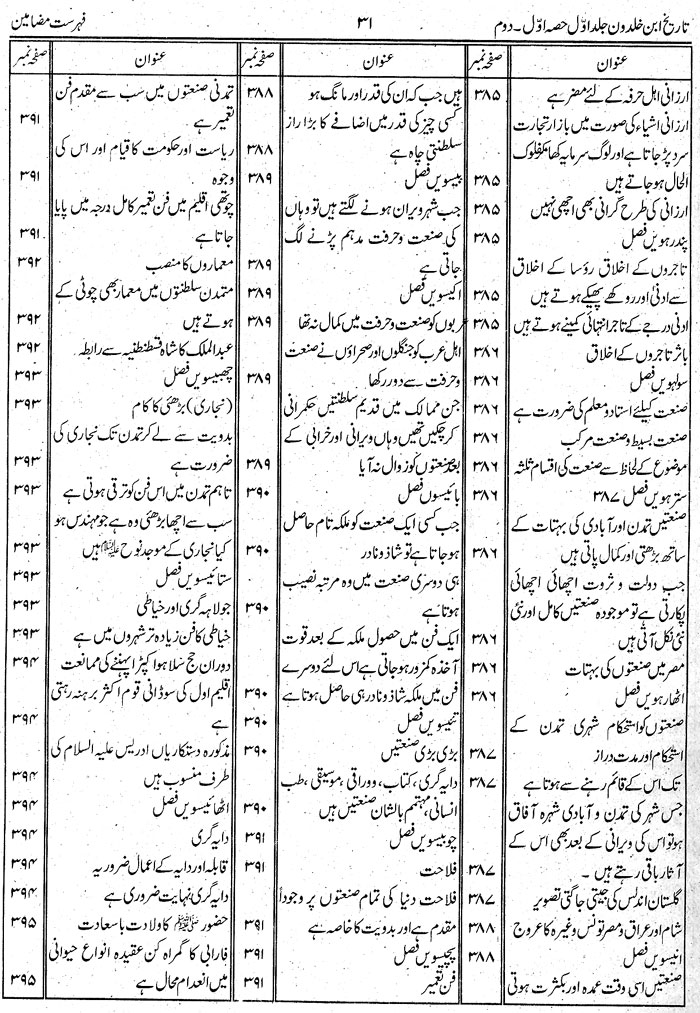 تاریخ ابن خلدون جلد اوّل حصہ اوّل ۔ دوم ۳۱ فہرست مضامین
عنوان صفحہ نمبر
ارزانی اہل حرفہ کے لئے مضر ہے ۳۸۵
ارزانی اشیاء کی صورت میں بازار تجارت
سرد پڑ جاتا ہے اور لوگ سرمایہ کھا کر مفلوک
الحال ہو جاتے ہیں ۳۸۵
ارزانی کی طرح گرانی بھی اچھی نہیں
پندرہویں فصل ۳۸۵
تاجروں کے اخلاق رؤسا کے اخلاق
سے ادنیٰ اور روکھے پھیکے ہوتے ہیں ۳۸۵
ادنیٰ درجے کے تاجر انتہائی کمینے ہوتے ہیں ۳۸۵
باثر تاجروں کے اخلاق ۳۸۶
سولہویں فصل ۳۸۶
صنعت کیلئے استاد و معلم کی ضرورت ہے ۳۸۶
صنعت بسیط و صنعت مرکب ۳۸۶
موضوع کے لحاظ سے صنعت کی اقسام ثلثہ ۳۸۶
سترہویں فصل ۳۸۷ ۳۸۶
صنعتیں تمدن اور آبادی کی بہتات کے
ساتھ بڑھتی اور کمال پاتی ہیں ۳۸۶
جب دولت و ثروت اچھائی اچھائی
پکارتی ہے تو موجودہ صنعتیں کامل اور نئی
نئی نکل آتی ہیں ۳۸۶
مصر میں صنعتوں کی بہتات ۳۸۶
اٹھارہویں فصل ۳۸۶
صنعتوں کو استحکام شہری تمدن کے
استحکام اور مدت دراز ۳۸۷
تک اس کے قائم رہنے سے ہوتا ہے ۳۸۷
جس شہر کی تمدن و آبادی شہرہ آفاق
ہو تو اس کی ویرانی کے بعد بھی اس کے
آثار باقی رہتے ہیں ۔ ۳۸۷
گلستان اندلس کی جیتی جاگتی تصویر ۳۸۷
شام اور عراق و مصر تونس وغیرہ کا عروج ۳۸۸
انیسویں فصل ۳۸۸
صنعتیں اسی وقت عمدہ اور بکثرت ہوتی
عنوان صفحہ نمبر
ہیں جب کہ ان کی قدر اور مانگ ہو ۳۸۸
کسی چیز کی قدر میں اضافے کا بڑا راز
سلطنتی چاہ ہے ۳۸۸
بیسویں فصل ۳۸۹
جب شہر ویران ہونے لگتے ہیں تو وہاں
کی صنعت و حرفت مدہم پڑنے لگ
جاتی ہے ۳۸۹
اکیسویں فصل ۳۸۹
عربوں کو صنعت و حرفت میں کمال نہ تھا ۳۸۹
اہل عرب کو جنگلوں اور صحراؤں نے صنعت
و حرفت سے دور رکھا ۳۸۹
جن ممالک میں قدیم سلطنتیں حکمرانی
کر چکیں تھیں وہاں ویرانی اور خرابی کے
بعد صنعتوں کو زوال نہ آیا ۳۸۹
بائیسوں فصل ۳۹۰
جب کسی ایک صنعت کو ملکہ تام حاصل
ہو جاتا ہے تو شاذ و نادر ۳۹۰
ہی دوسری صنعت میں وہ مرتبہ نصیب
ہوتا ہے ۳۹۰
ایک فن میں حصول ملکہ کے بعد قوت
آخذہ کمزور ہو جاتی ہے اس لئے دوسرے
فن میں ملکہ شاذ و نادر ہی حاصل ہوتا ہے ۳۹۰
تئیسویں فصل ۳۹۰
بڑی بڑی صنعتیں ۳۹۰
دایہ گری، کتاب، ووراقی، موسیقی، طب
انسانی، مہتم بالشان صنعتیں ہیں ۳۹۰
چوبیسویں فصل ۳۹۱
فلاحت ۳۹۱
فلاحت دنیا کی تمام صنعتوں پر وجوداً
مقدم ہے اور بدویت کا خاصہ ہے ۳۹۱
پچیسویں فصل ۳۹۱
فن تعمیر ۳۹۱
عنوان صفحہ نمبر
تمدنی صنعتوں میں سب سے مقدم فن
تعمیر ہے ۳۹۱
ریاست اور حکومت کا قیام اور اس کی
وجوہ ۳۹۱
چوتھی اقلیم میں فن تعمیر کامل درجہ میں پایا
جاتا ہے ۳۹۱
معماروں کا منصب ۳۹۲
متمدن سلطنتوں میں معمار بھی چوٹی کے
ہوتے ہیں ۳۹۲
عبدالملک کا شاہ قسطنطنیہ سے رابطہ ۳۹۲
چھبیسویں فصل ۳۹۳
(نجاری) بڑھئی کا کام ۳۹۳
بدویت سے لے کر تمدن تک نجاری کی
ضرورت ہے ۳۹۳
تاہم تمدن میں اس فن کو ترقی ہوتی ہے ۳۹۳
سب سے اچھا بڑھئی وہ ہے جو مہندس ہو
کیا نجاری کے موجد نوح علیہ السلام ہیں ۳۹۳
ستائیسویں فصل ۳۹۳
جولاہہ گری اور خیاطی ۳۹۳
خیاطی کا فن زیادہ تر شہروں میں ہے ۳۹۳
دوران حج سلا ہوا کپڑا پہننے کی ممانعت ۳۹۴
اقلیم اول کی سوڈانی قوم اکثر برہنہ رہتی
ہے ۳۹۴
مذکورہ دستکاریاں ادریس علیہ السلام کی
طرف منسوب ہیں ۳۹۴
اٹھائیسویں فصل ۳۹۴
دایہ گری ۳۹۴
قابلہ اور دایہ کے اعمال ضروریہ ۳۹۴
دایہ گری نہایت ضروری ہے ۳۹۴
حضور ﷺ کا ولادت با سعادت ۳۹۵
فارابی کا گمراہ کن عقیدہ انواع حیوانی
میں انعدام محال ہے ۳۹۵